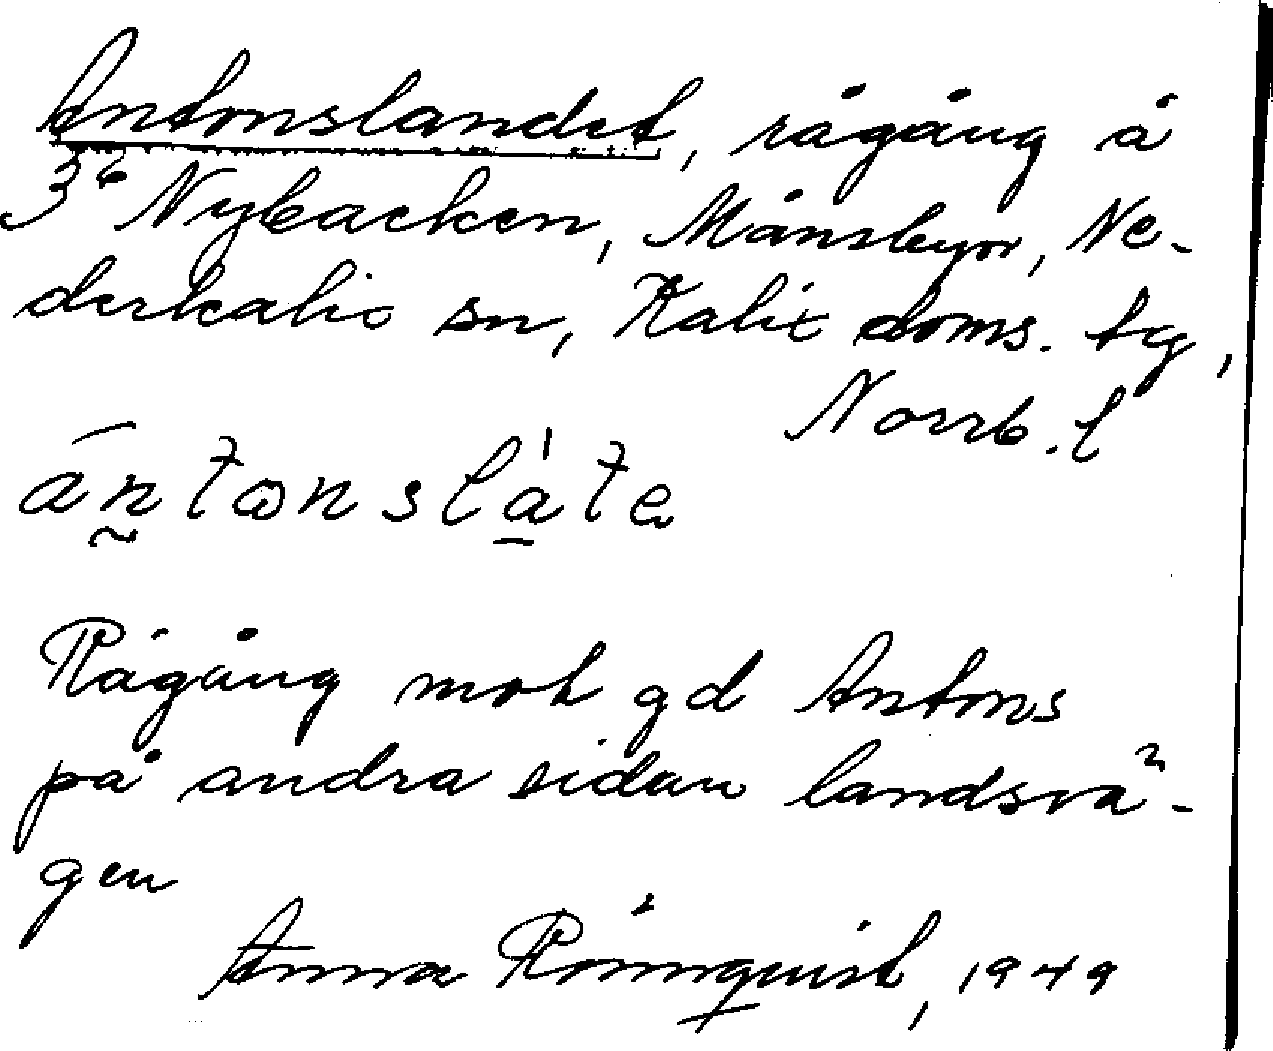 Antonslandet, rågång å
3⁶ Nybacken, Månsbyn, Ne-
derkalix sn, Kalix doms. tg,
Norrb. l
ántonslàte
Rågång mot gd Antons
på andra sidan landsvä-
gen
Anna Rönnquist, 1949